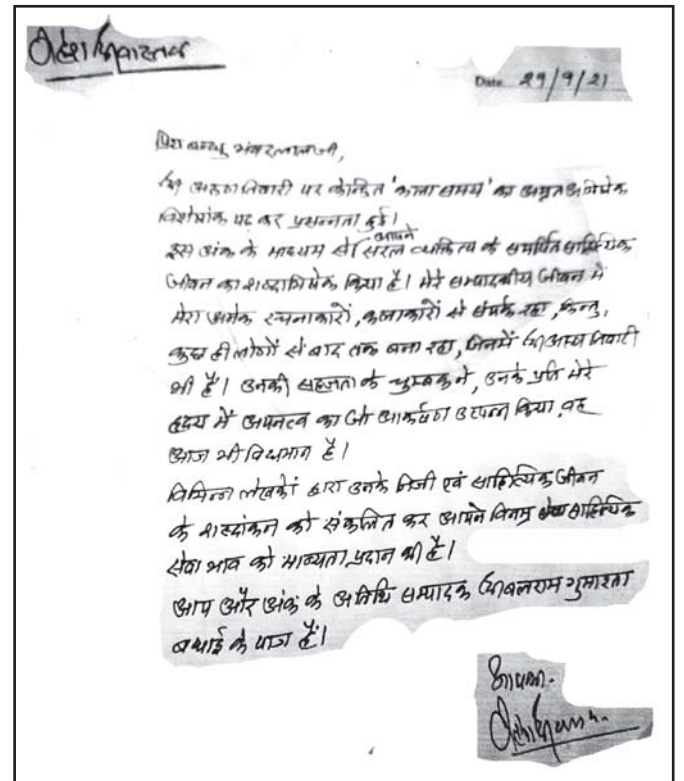 महेश श्रीवास्तव
Date 29/9/21
प्रिय बन्धु भंवरलालजी,
श्री अरुण तिवारी पर केन्द्रित 'कला समय' का अमृत अभिषेक
विशेषांक पढ़ कर प्रसन्नता हुई।
इस अंक के माध्यम से आपने सरल व्यक्तित्व के समर्पित साहित्यिक
जीवन का शब्दाभिषेक किया है। मेरे सम्पादकीय जीवन में
मेरा अनेक रचनाकारों, कलाकारों से संपर्क रहा, किन्तु,
कुछ ही लोगों से बाद तक बना रहा, जिनमें श्री अरुण तिवारी
भी हैं। उनकी सहजता के चुम्बक ने, उनके प्रति मेरे
हृदय में अपनत्व का जो आकर्षण उत्पन्न किया, वह
आज भी विद्यमान है।
विभिन्न लेखकों द्वारा उनके निजी एवं साहित्यिक जीवन
के शब्दांकन को संकलित कर आपने विनम्र साहित्यिक
सेवा भाव को मान्यता प्रदान की है।
आप और अंक के अतिथि सम्पादक श्री बलराम गुमास्ता
बधाई के पात्र हैं।
आपका-